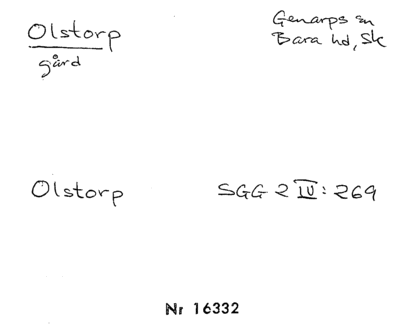 Olstorp
gård
Genarps sn
Bara hd, Sk
Olstorp
SGG 2 IV: 269
Nr 16332